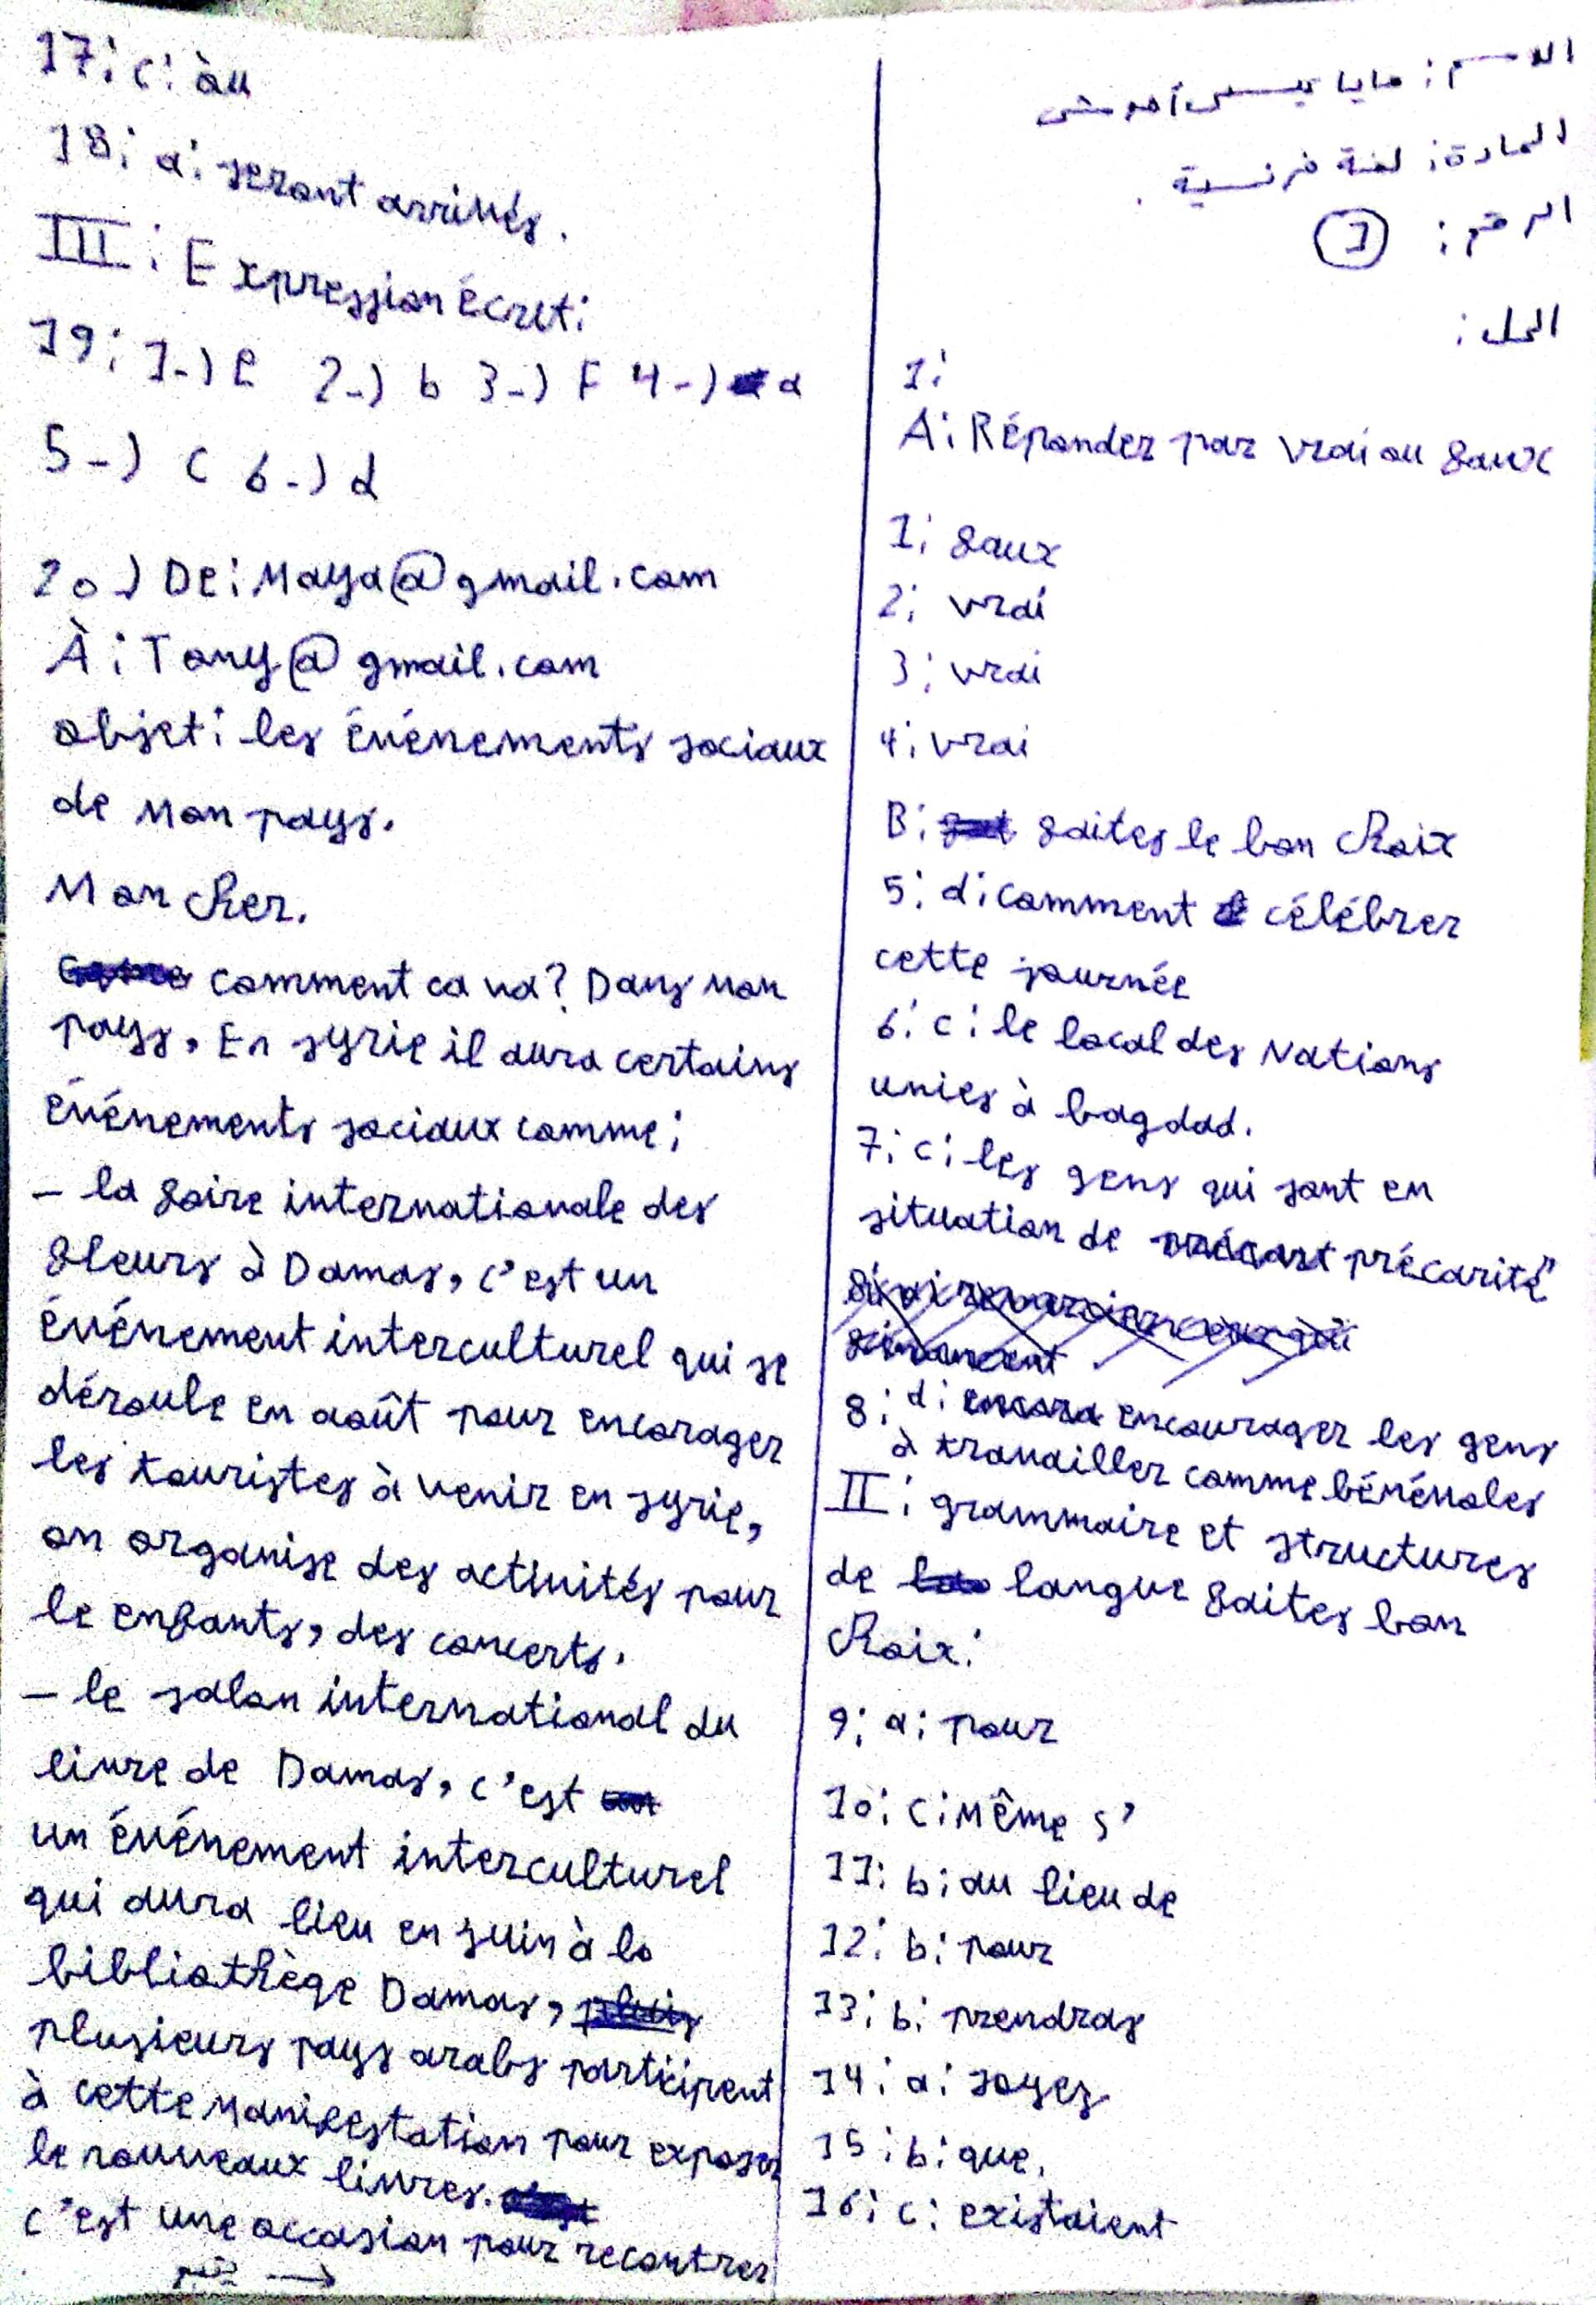 الاسم: مايا عيسى أموشى
المادة: لغة فرنسية.
الرقم: 1
الحل:
1:
A: Répondez par vrai ou faux
1: faux
2: vrai
3: vrai
4: vrai
B: faites le bon choix
5: d: comment célébrer
cette journée
6: c: le local des Nations
unies à bagdad.
7: c: les gens qui sont en
situation de précarité
8: d: encourager les gens
à travailler comme bénévoles
II: grammaire et structures
de langue faites bon
choix:
9: a: pour
10: c: Même s'
11: b: au lieu de
12: b: pour
13: b: prendras
14: a: soyez
15: b: que.
16: c: existaient
17: c: àu
18: a: seront arrivés.
III: Expression écret:
19: 1-) e 2-) b 3-) F 4-) a
5-) c 6-) d
20-) De: Maya@gmail.com
À: Tony@gmail.com
objet: les événements sociaux
de Mon pays.
Mon cher.
comment ca va? Dans Mon
pays, En syrie il aura certains
événements sociaux comme:
- la foire internationale des
fleurs à Damas, c'est un
événement interculturel qui se
déroule en août pour encorager
les touristes à venir en syrie,
on organise des activités pour
le enfants, des concerts.
- le salon international du
livre de Damas, c'est
un événement interculturel
qui aura lieu en juin à la
bibliothèqe Damas,
plusieurs pays arabs participent
à cette Manifestation pour exposer
le nouveaux livres.
c'est une occasion pour recontrer
→